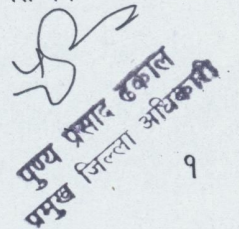 पुण्य प्रसाद ढकाल
प्रमुख जिल्ला अधिकारी
१